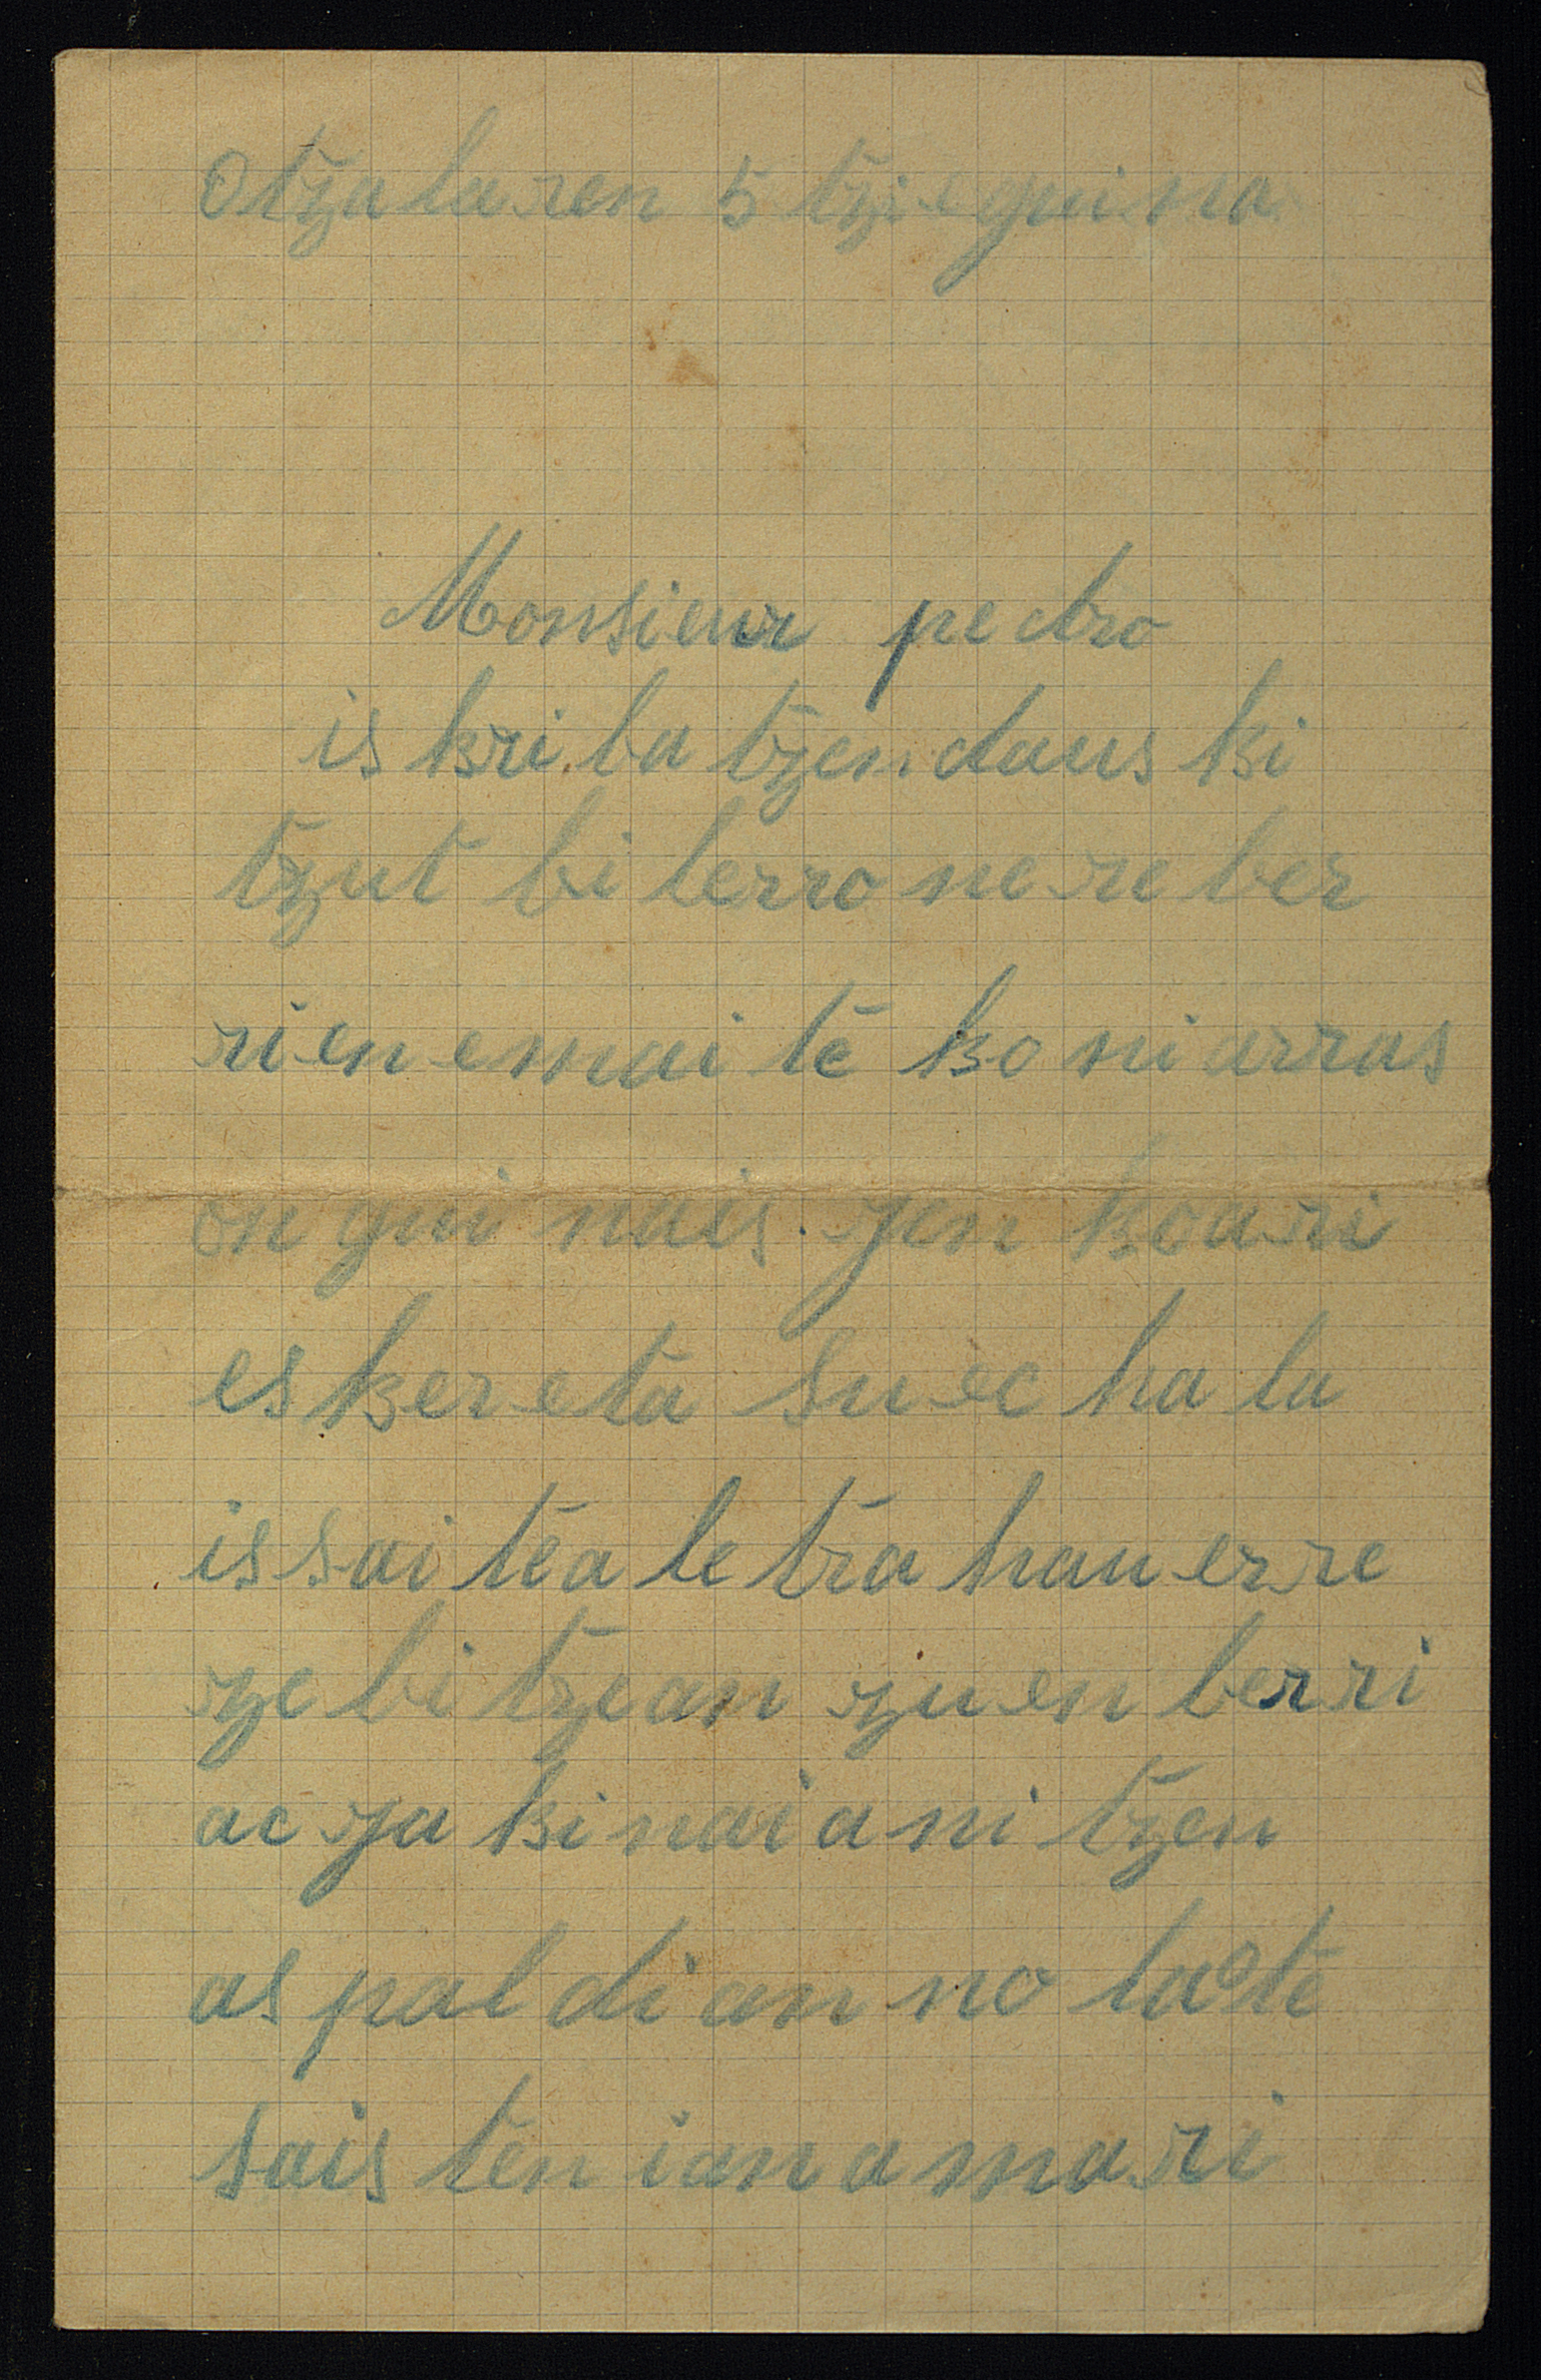 Otzalaren 5 tzieguina
Monsieur pedro
is kri ba tzen daus ki
tzut bi lerro ne re ber
rien emai te ko ni arras
on gui nais. yen koari
es ker eta su ec ha la
is sai tea le tra hau er re
ze bi tzean zu en berri
ac ja ki nai a ni tzen
as pal di an no la ote
sais ten ian a ma ri